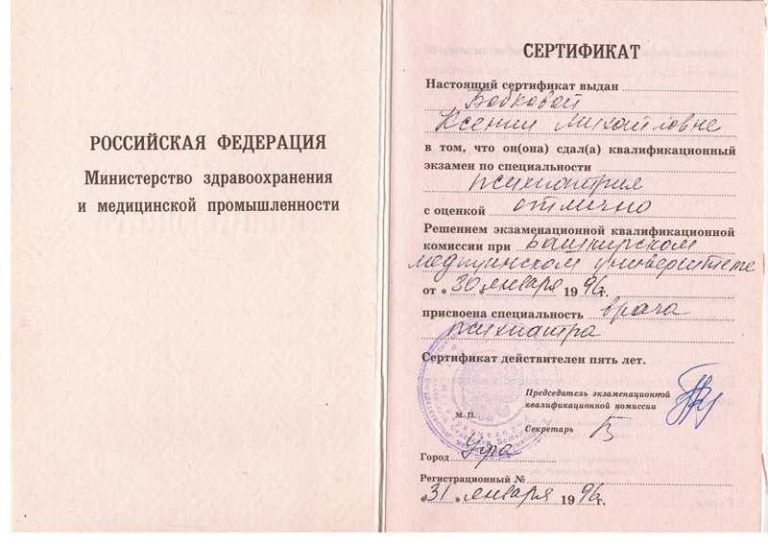 РОССИЙСКАЯ ФЕДЕРАЦИЯ
Министерство здравоохранения
и медицинской промышленности
СЕРТИФИКАТ
Настоящий сертификат выдан
Бобковой
Ксении Михайловне
в том, что он(она) сдал(а) квалификационный
экзамен по специальности
психиатрия
с оценкой отлично
Решением экзаменационной квалификационной
комиссии при Башкирском
медицинском университете
от «30» января 1996г.
присвоена специальность врача
психиатра
Сертификат действителен пять лет.
Председатель экзаменационной
квалификационной комиссии
М. П.
Секретарь
Город Уфа
Регистрационный №
«31» января 1996г.